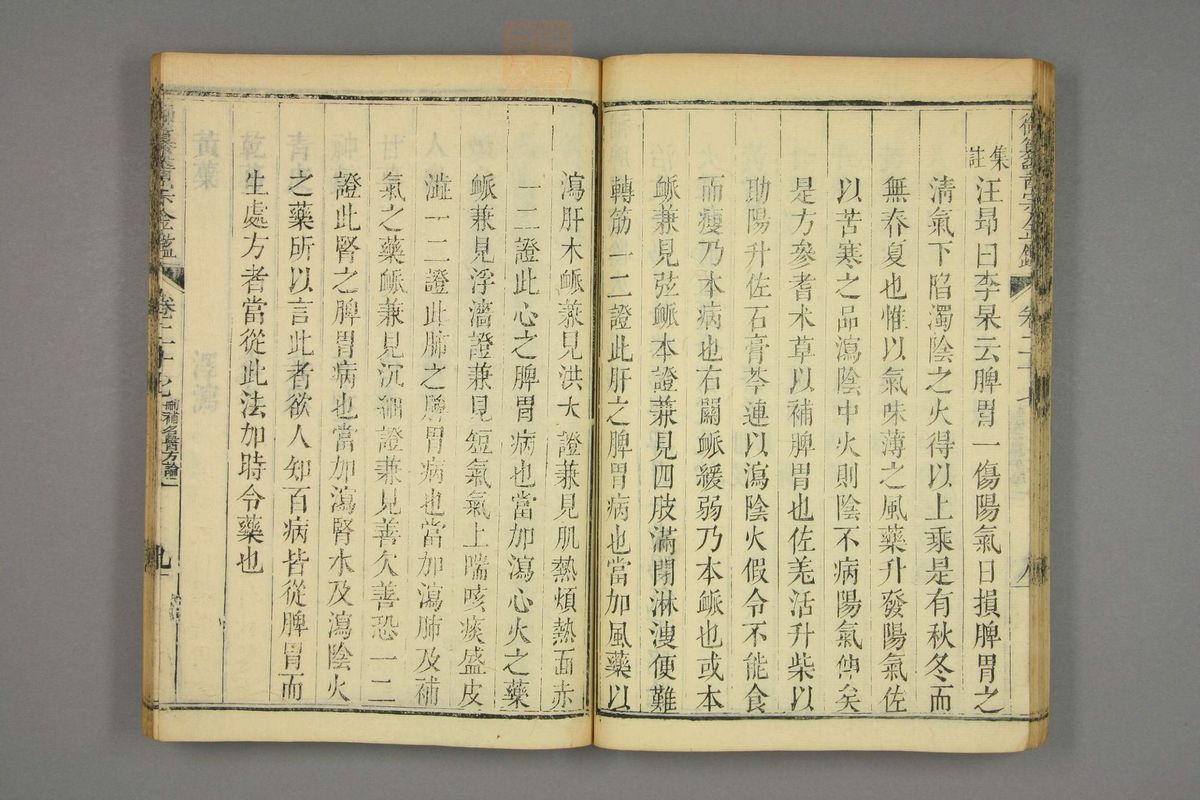 御纂醫宗金鑑 卷二十七
集註
汪昂曰李杲云脾胃一傷陽氣日損脾胃之
清氣下陷濁陰之火得以上乘是有秋冬而
無春夏也惟以氣味薄之風藥升發陽氣佐
以苦寒之品瀉陰中火則陰不病陽氣伸矣
是方參耆朮草以補脾胃也佐羌活升柴以
助陽升佐石膏芩連以瀉陰火假令不能食
而瘦乃本病也右關脈緩弱乃本脈也或本
脈兼見弦脈本證兼見四肢滿閉淋溲便難
轉筋一二證此肝之脾胃病也當加風藥以
瀉肝木脈兼見洪大證兼見肌熱煩熱面赤
一二證此心之脾胃病也當加瀉心火之藥
脈兼見浮濇證兼見短氣氣上喘咳痰盛皮
澁一二證此肺之脾胃病也當加瀉肺及補
氣之藥脈兼見沉細證兼見善欠善恐一二
證此腎之脾胃病也當加瀉腎水及瀉陰火
之藥所以言此者欲人知百病皆從脾胃而
生處方者當從此法加時令藥也
御纂醫宗金鑑 卷二十七 刪補名醫方論二 九